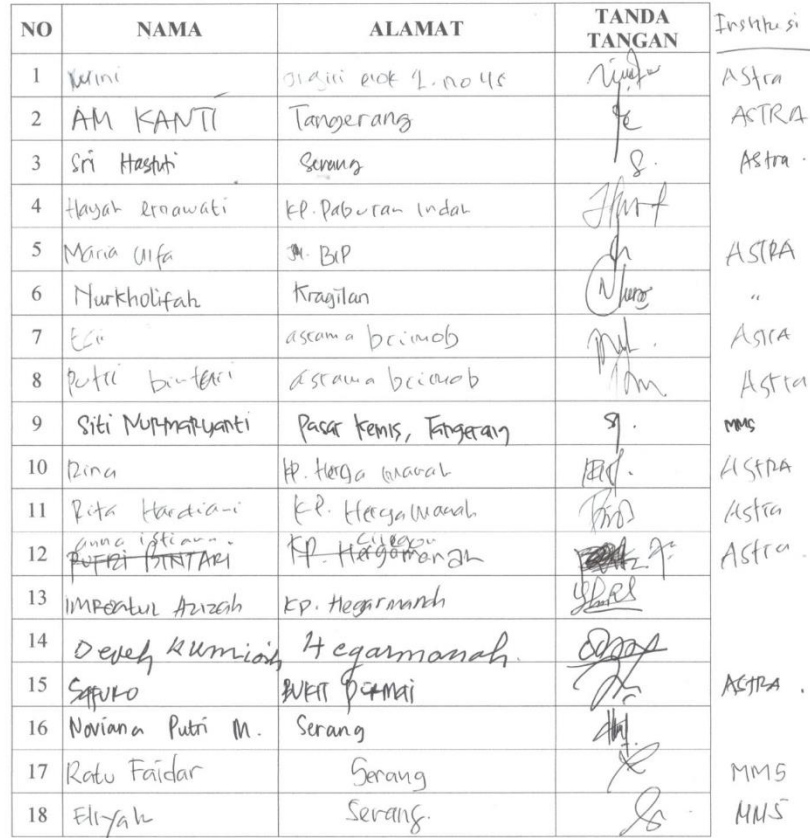 NO NAMA ALAMAT TANDA TANGAN Institusi
1 Astra
2 AM KANTI Tangerang ASTRA
3 Sri Hastuti Serang S. Astra .
4 Hayah ernawati KP. Paburan Indah
5 Maria Ulfa BIP ASTRA
6 Nurkholifah Kragilan "
7 asrama brimob Astra
8 Putri bintari asrama brimob Astra
9 Siti Nurmaryanti Pasar Kemis, Tangerang MMS
10 Rina KP. Herga manah ASTRA
11 Rita Hardiani KP. Hergamanah Astra
anna istiann. Cilegon
12 PUTRI BINTARI KP. Hergomanah Astra.
13 Azizah KP. Hegarmanah
14 Hegarmanah.
15 BUKIT PERMAI ASTRA .
16 Noviana Putri M. Serang
17 Ratu Faidar Serang MMS
18 Eliyah Serang. MMS